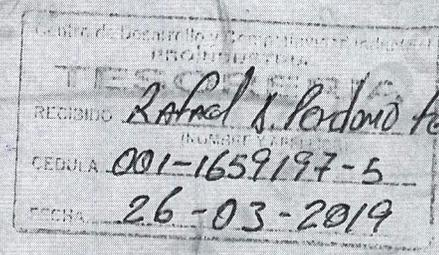 Centro de Desarrollo y Competitividad Industrial
PROINDUSTRIA
TESORERIA
RECIBIDO Rafael A. Perdomo
(NOMBRE Y APELLIDO)
CEDULA 001-1659197-5
FECHA 26-03-2019